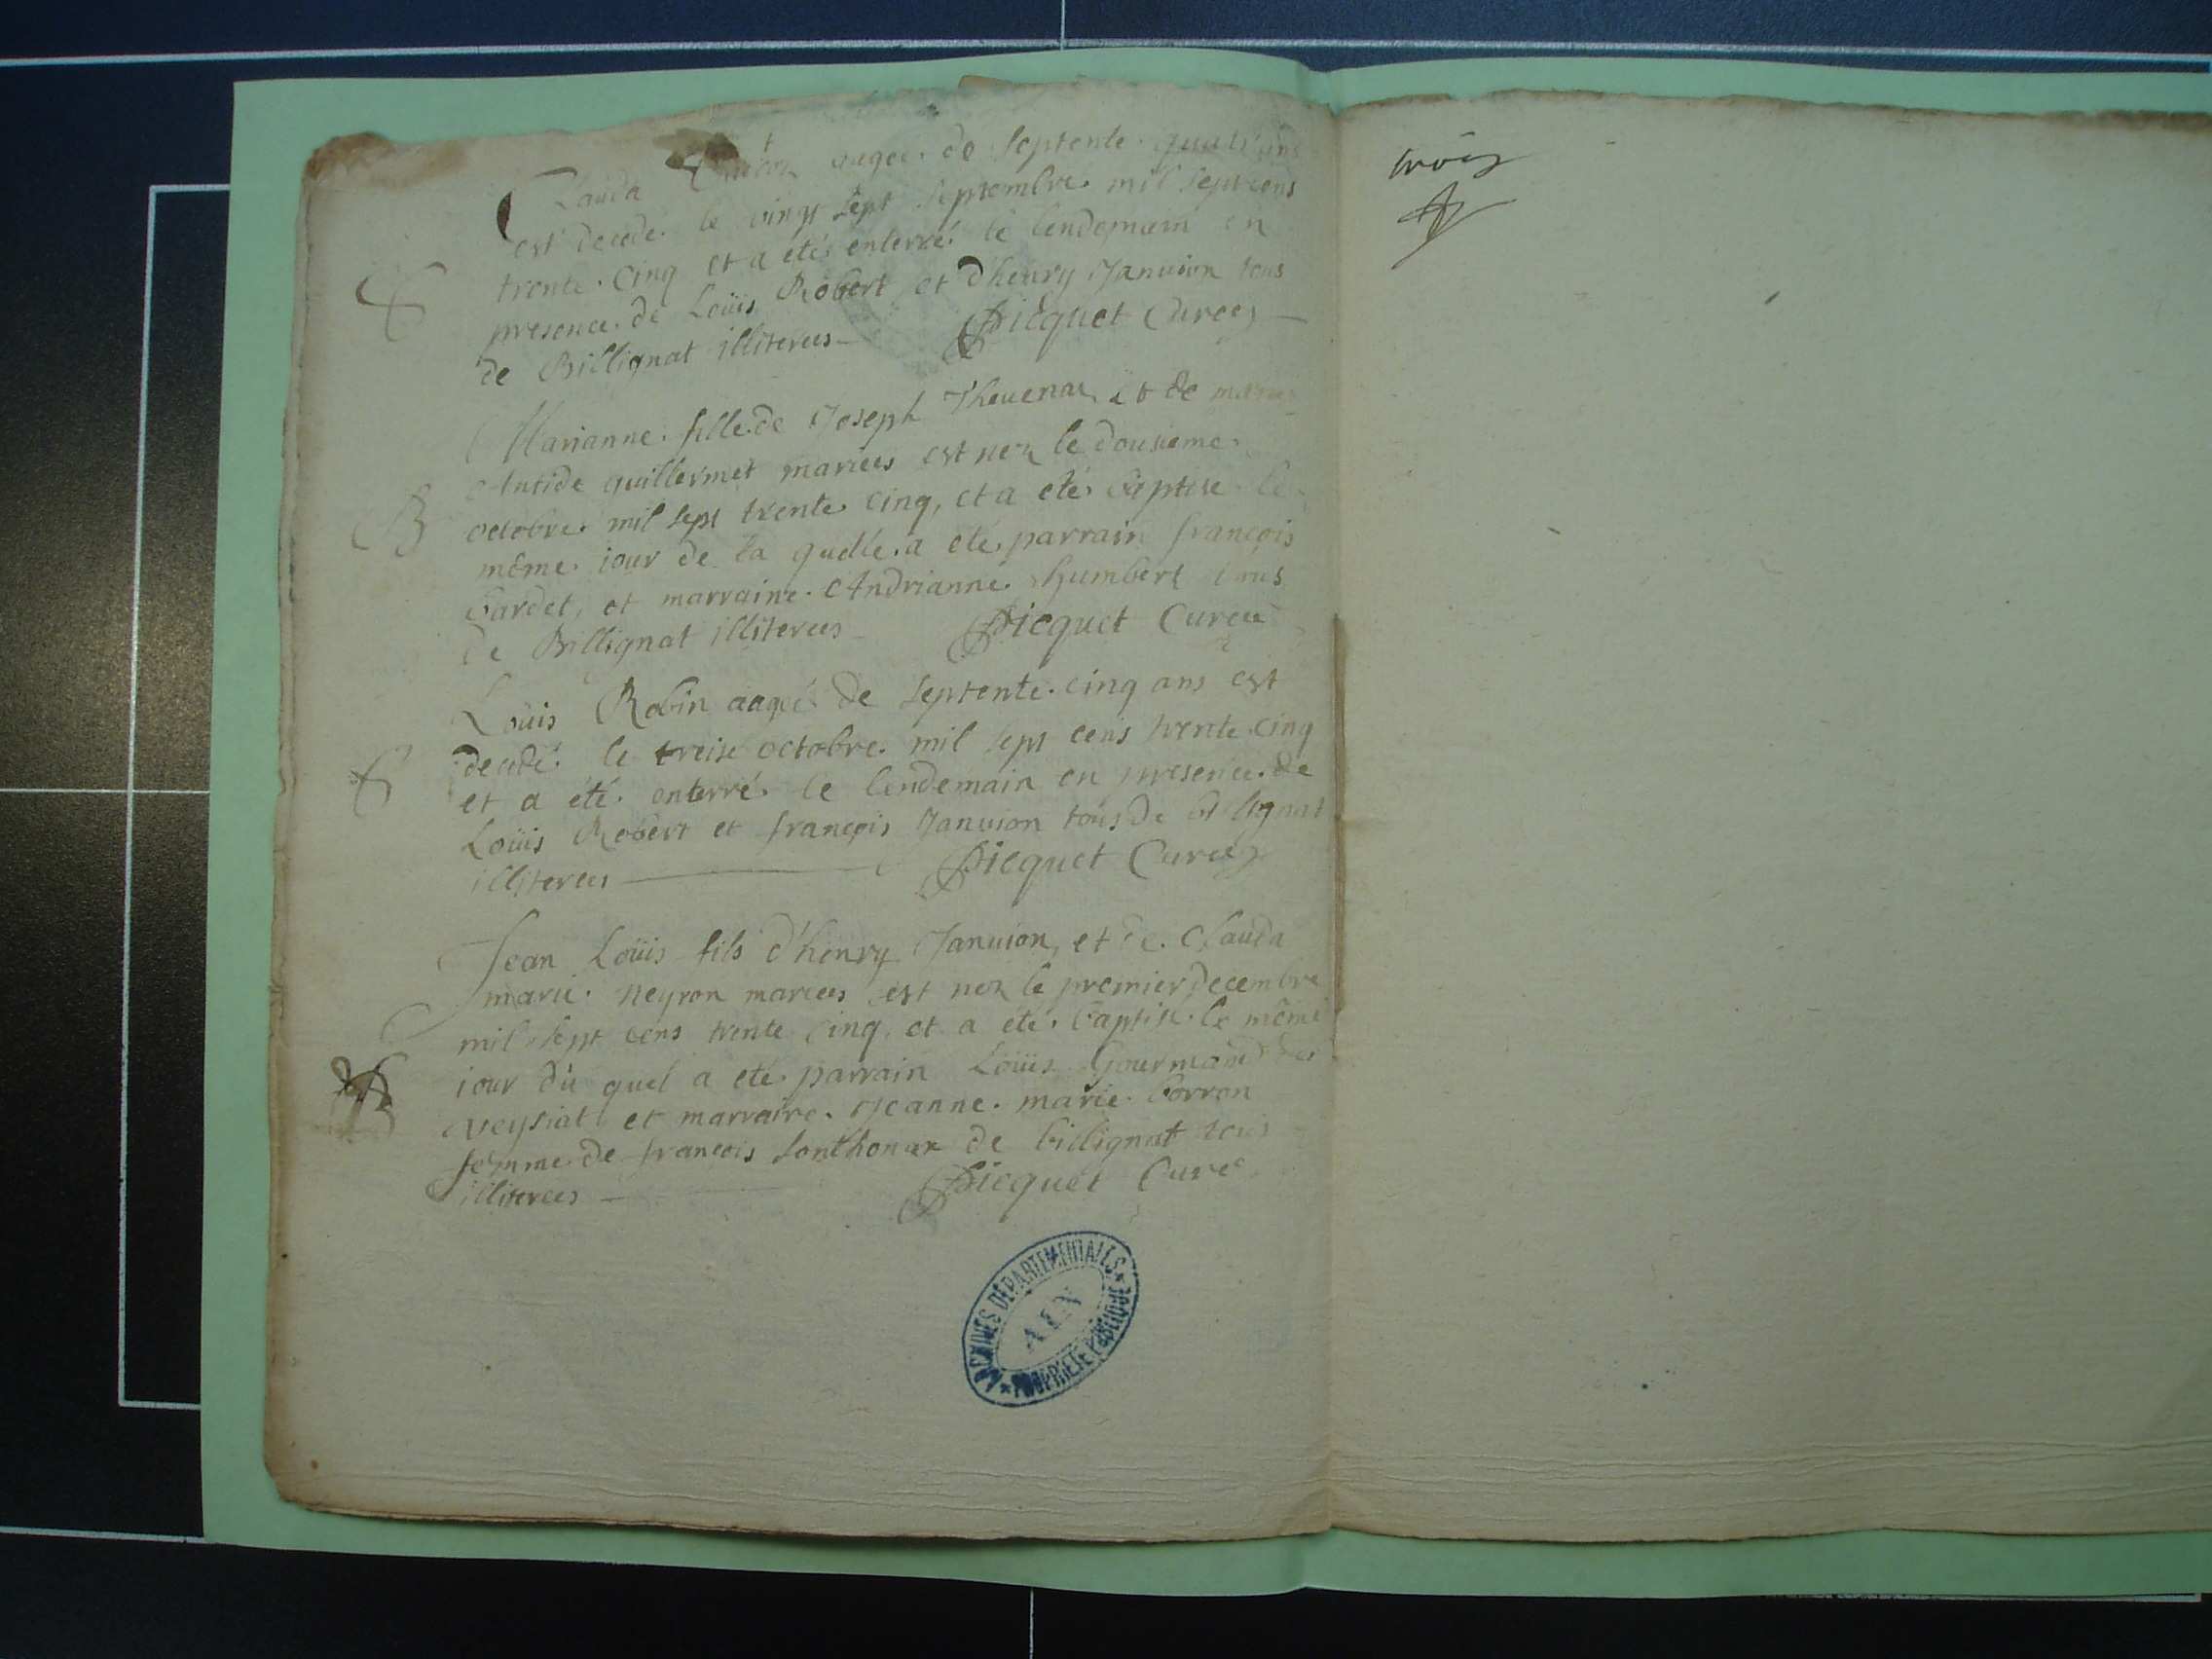 Clauda aagee de septente quatr'ans
est decedé le vingt sept septembre mil sept cens
trente cinq et a eté enterré le lendemain en
presence de Loüis Robert et d'henry Janvion tous
de Billignat illiterees Picquet Curee
Marianne fille de Joseph Thevenar et de marie
Antide guillermet mariees est nez le dousieme
B octobre mil sept trente cinq, et a eté baptise le
même iour de la quelle a eté parrain françois
bardet, et marraine Andrianne humbert tous
de Billignat illiterees Picquet Curee
Loüis Robin aagé de septente cinq ans est
decedé le treise octobre mil sept cens trente cinq
et a été enterré le lendemain en presence de
Loüis Robert et françois Janvion tous de billignat
illiterees Picquet Curee
Jean Loüis fils d'henry Janvion, et de Clauda
marie neyron mariees est nez le premier decembre
mil sept cens trente cinq, et a eté baptise le même
B iour du quel a eté parrain Loüis Gourmand de
veysiat et marraine Jeanne marie borron
femme de françois Sonthonax de billignat tous
illiterees Picquet Curé
ARCHIVES DÉPARTEMENTALES
AIN
PROPRIÉTÉ PUBLIQUE
trois